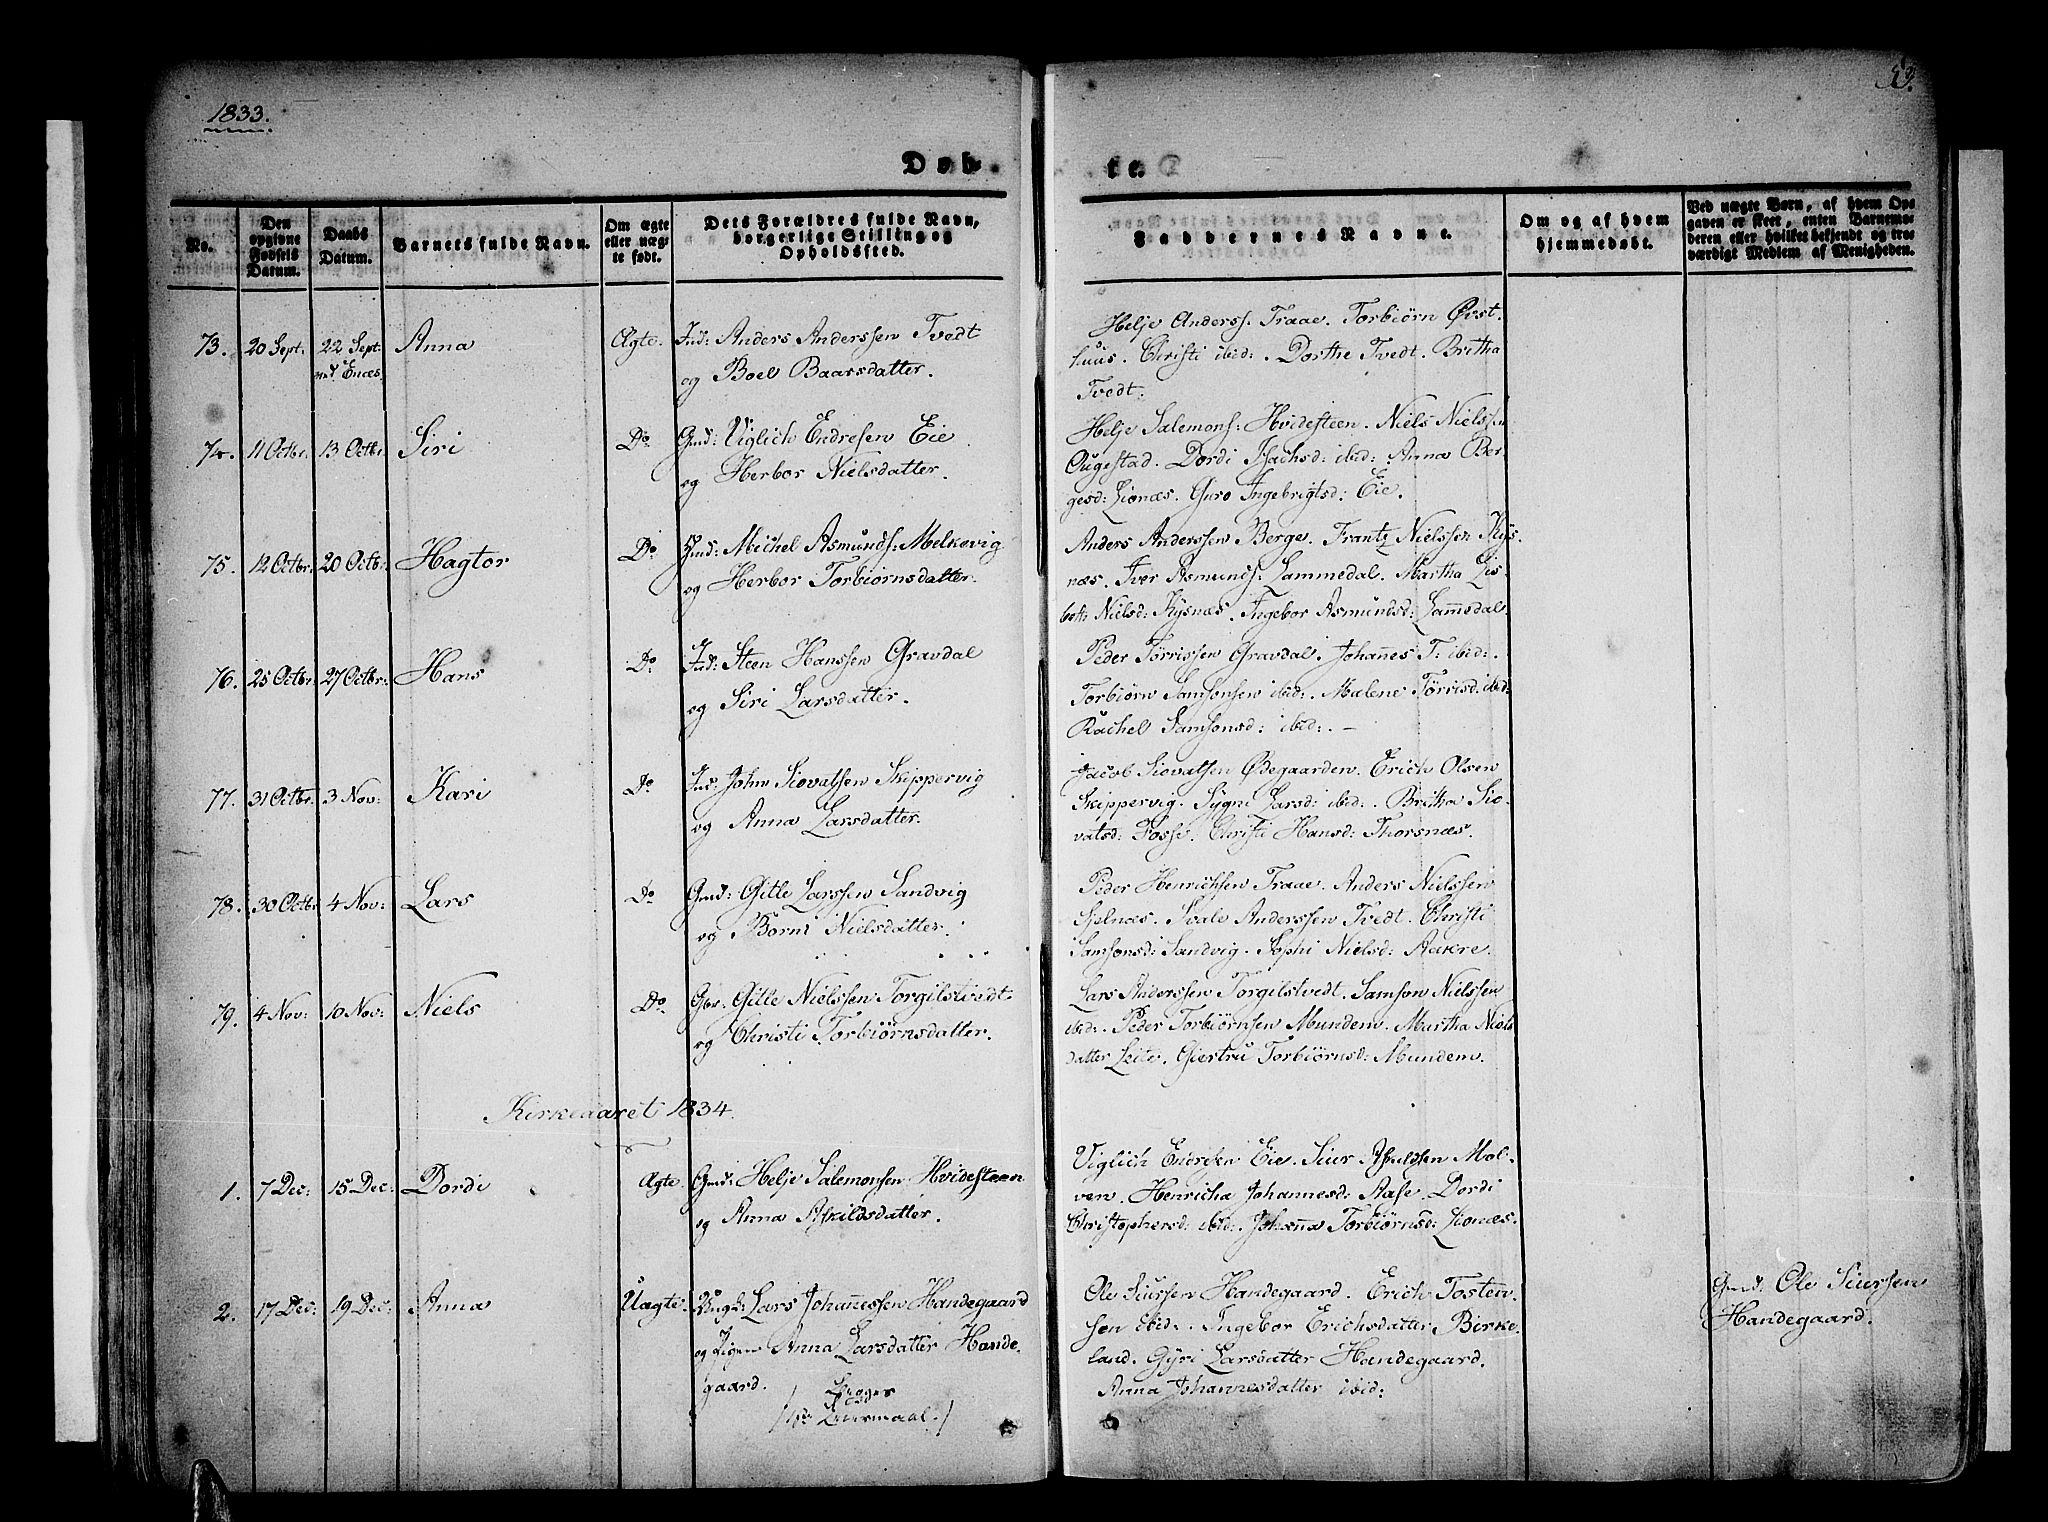 1833.
53.
Døb-
te.
No.
Den
opgivne
Fødsels
Datum.
Daabs
Datum.
Barnets fulde Navn.
Om ægte
eller uæg-
te født.
Dets Forældres fulde Navn,
borgerlige Stilling og
Opholdssted.
Faddernes Navne.
Om og af hvem
hjemmedøbt.
Ved uægte Børn, af hvem Op-
gaven er skeet, enten Barnemo-
deren eller hvilket bekjendt og tro-
værdigt Medlem af Menigheden.
73. 20 Sept. 22 Sept: Anna Ægte. Ind: Anders Anderssen Tvedt
ved Enæs. og Boel Baarsdatter.
Helje Anderss. Traae. Torbiörn Øvst-
huus. Christi ibid:. Dorthe Tvedt. Britha
Tvedt.
74. 11 Octbr. 13 Octbr. Siri Do Gmd: Viglich Endresen Eie
og Herbor Nielsdatter.
Helje Salemons: Hvidesteen. Niels Nielssen
Ougestad. Dordi Isachsd: ibid: Anna Ber-
gesd: Lionæs. Guro Ingebrigtsd: Eie.
75. 12 Octbr: 20 Octbr. Hagtor Do Hmd: Michel Asmunds: Melkevig
og Herbor Torbiörnsdatter.
Anders Anderssen Berge. Frantz Nielssen Kys-
næs. Iver Asmunds: Lammedal. Martha Lis-
beth Nielsd: Kysnæs. Ingebor Asmundsd: Lamedal.
76. 25 Octbr: 27 Octbr: Hans Do Ind: Steen Hanssen Gravdal
og Siri Larsdatter.
Peder Törrissen Gravdal. Johanes T: ibid:.
Torbiörn Samsonsen ibid:. Malene Törrisd: ibid:
Rachel Samsonsd: ibid:. —
77. 31 Octbr. 3 Nov: Kari Do Ind: John Siovatsen Skippervig
og Anna Larsdatter.
Jacob Siovatsen Ødegaarden. Erich Olsen
Skippervig. Sygni Larsd: ibid:. Britha Sio-
vatsd: Fosse. Christi Hansd: Thorsnæs.
78. 30 Octbr 4 Nov: Lars Do Gmd: Gitle Larssen Sandvig
og Borni Nielsdatter.
Peder Henrichsen Traae. Anders Nielssen
Sjelnæs. Soale Anderssen Tvedt. Christi
Samsonsd: Sandvig. Sophi Nielsd: Aakre.
79. 4 Nov: 10 Nov: Niels Do Gbr. Gitle Nielssen Torgilstvedt
og Christi Torbiörnsdatter.
Lars Anderssen Torgilstvedt. Samson Nielssen
ibid:. Peder Torbiörnsen Munden. Martha Niels
datter Leite. Giertru Torbiörnsd: Munden.
Kirkeaaret 1834.
1. 7 Dec: 15 Dec: Dordi Ægte. Gmd: Helje Salemonsen Hvidesteen
og Anna Askildsdatter.
Viglich Endresen Eie. Siur Askildsen Mol-
ven. Henricha Johannesd: Aase. Dordi
Christophersd: ibid:. Johanna Torbiörnsd: Lionæs.
2. 17 Dec: 19 Dec: Anna Uægte. Ungk: Lars Johannessen Handegaard
og Pigen Anna Larsdatter Hande-
gaard.
Begges
1ste Leiermaal.
Ole Siursen Handegaard. Erich Tosten-
sen ibid:. Ingebor Erichsdatter Birke-
land. Gyri Larsdatter Handegaard.
Anna Johannesdatter ibid:
Gmd. Ole Siursen
Handegaard.